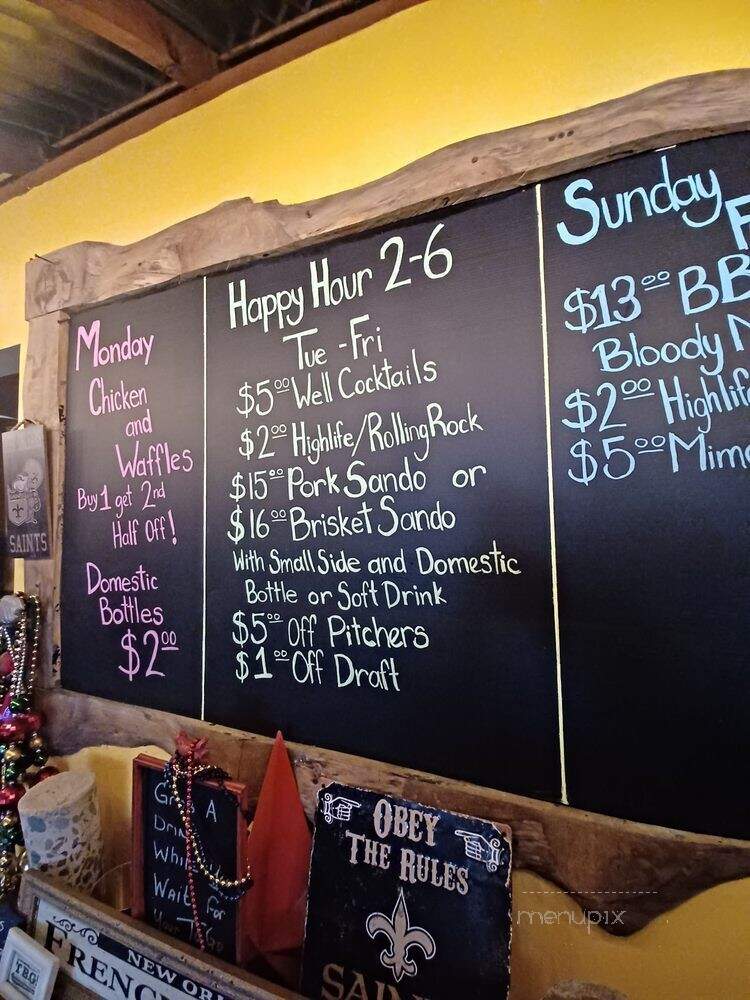 Monday
Chicken
and
Waffles
Buy 1 get 2nd
Half Off!
Domestic
Bottles
$2.00
Happy Hour 2-6
Tue - Fri
$5.00 Well Cocktails
$2.00 Highlife/Rolling Rock
$15.00 Pork Sando or
$16.00 Brisket Sando
With Small Side and Domestic
Bottle or Soft Drink
$5.00 Off Pitchers
$1.00 Off Draft
Sunday
$13.00 BB
Bloody
$2.00 Highlife
$5.00 Mim
SAINTS
A
Wait For
OBEY
THE RULES
SAIN
NEW OR
FRENC
TBG
menupix